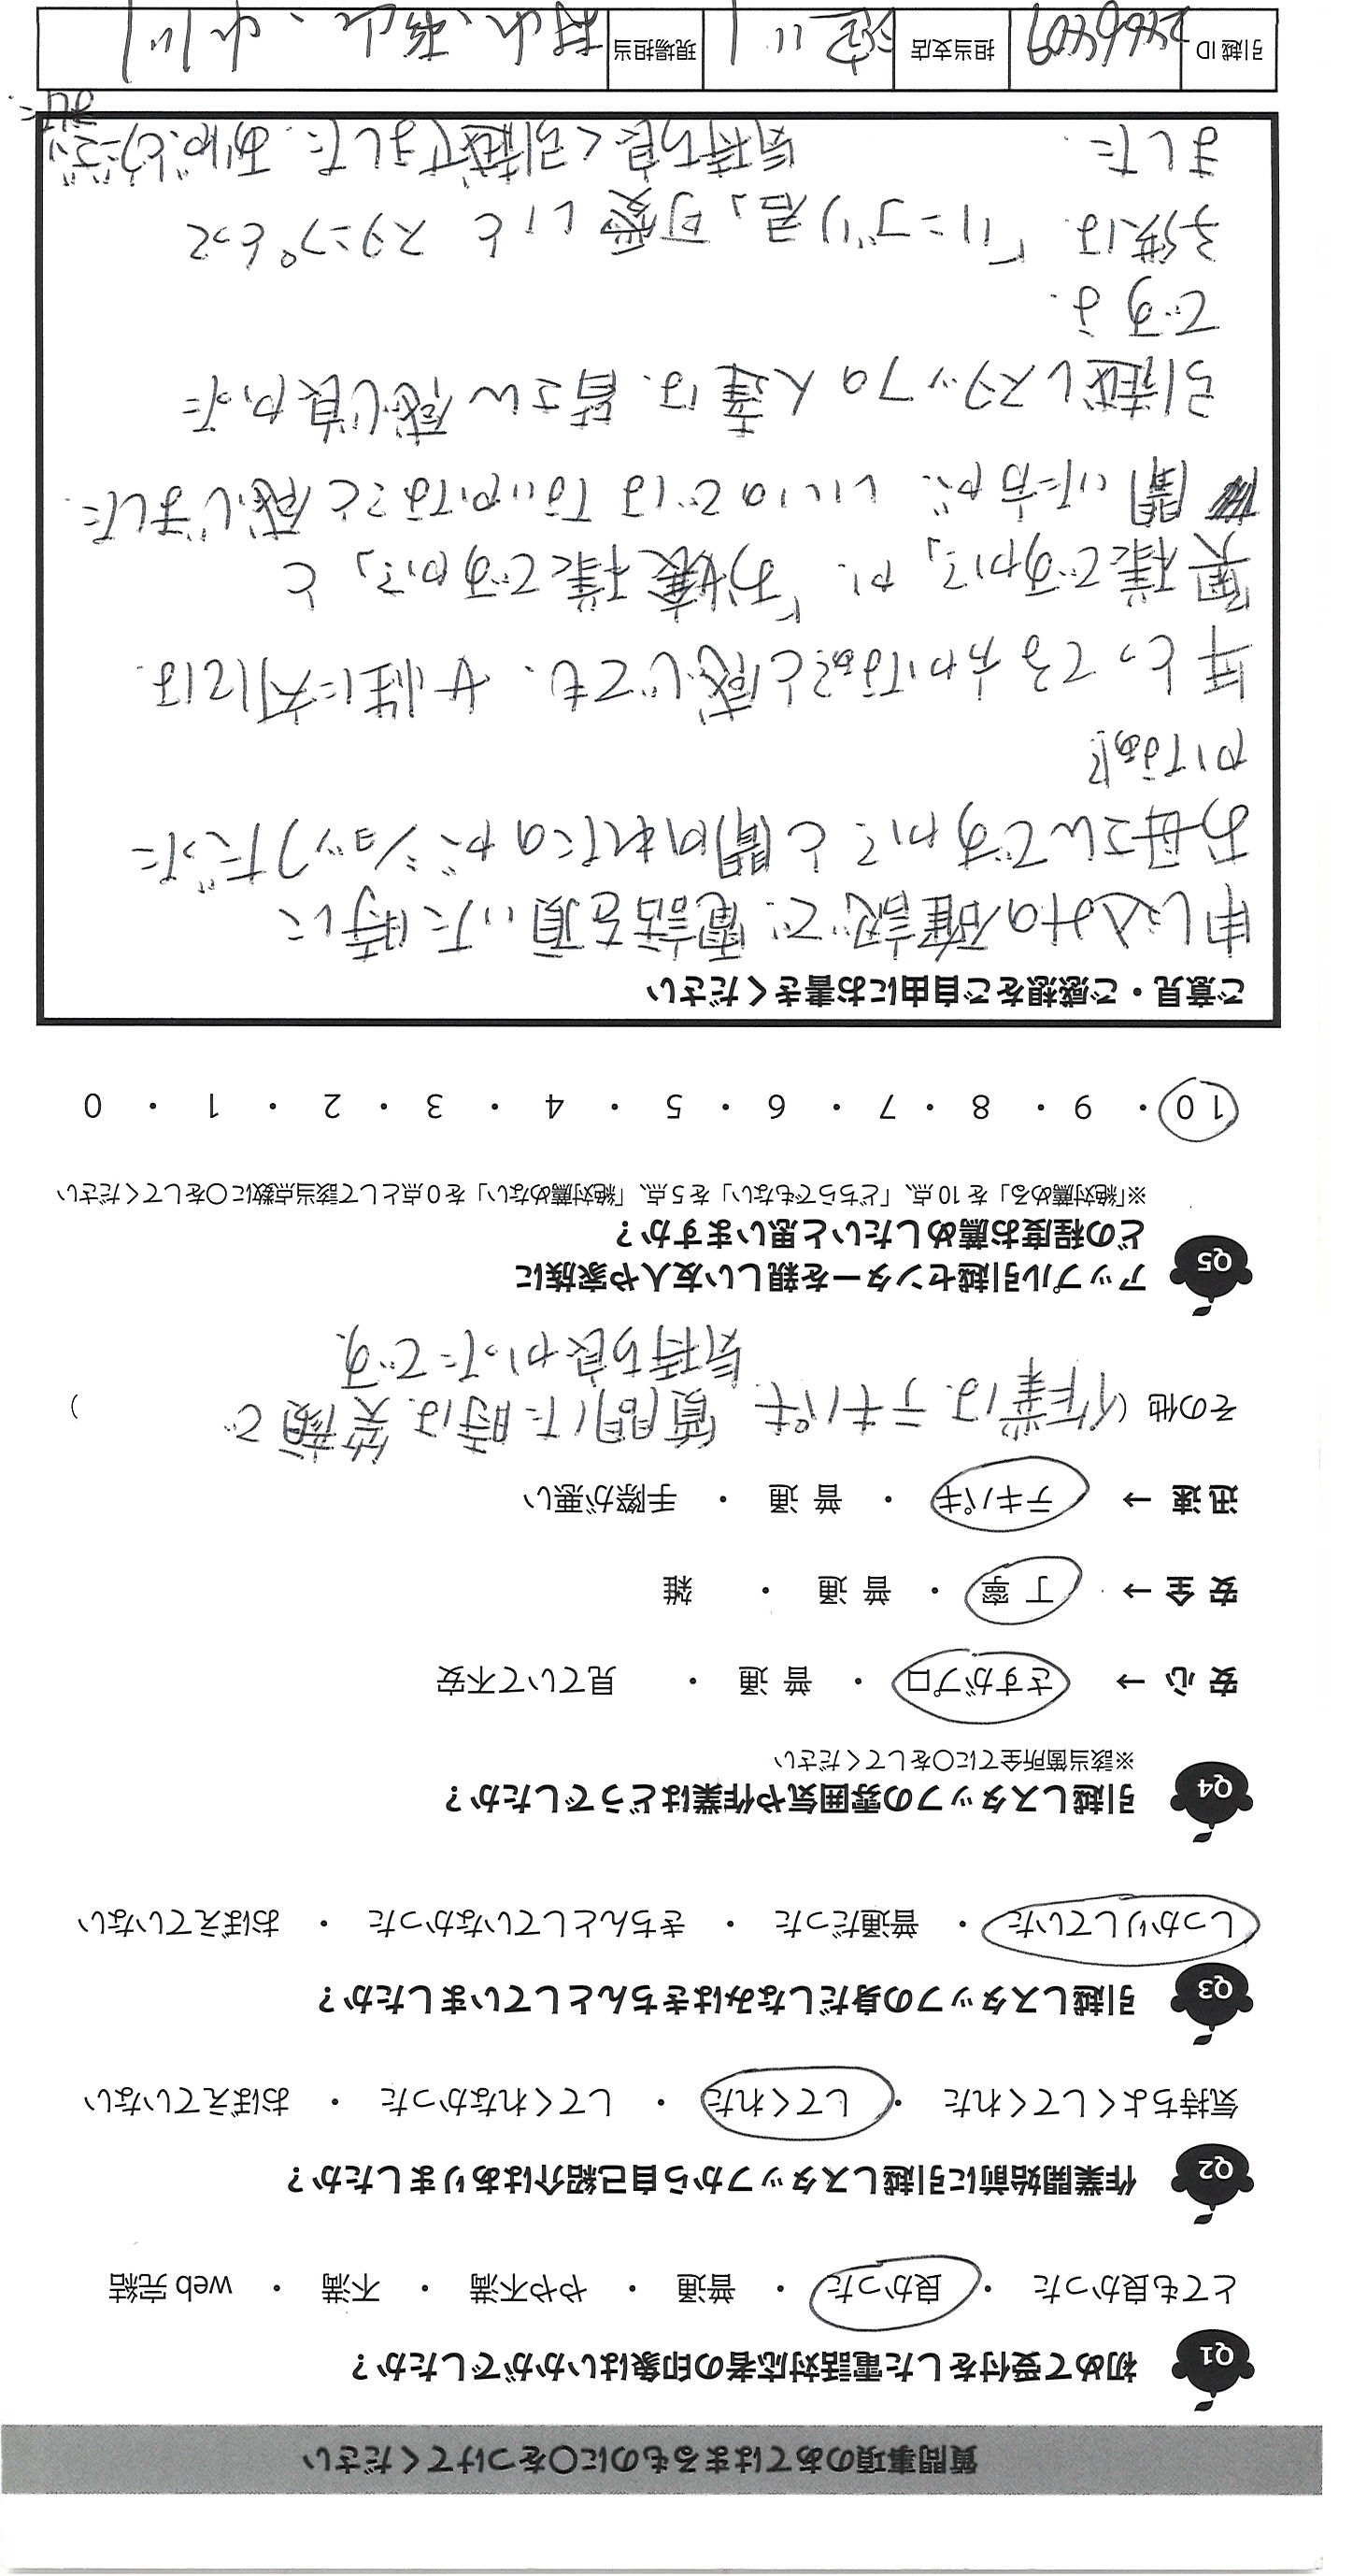 質問事項のあてはまるものに〇をつけてください
Q1 初めて受付をした電話対応者の印象はいかがでしたか？
とても良かった ・ 良かった ・ 普通 ・ やや不満 ・ 不満 ・ web 完結
Q2 作業開始前に引越しスタッフから自己紹介はありましたか？
気持ちよくしてくれた ・ してくれた ・ してくれなかった ・ おぼえていない
Q3 引越しスタッフの身だしなみはきちんとしていましたか？
しっかりしていた ・ 普通だった ・ きちんとしていなかった ・ おぼえていない
Q4 引越しスタッフの雰囲気や作業はどうでしたか？
※該当箇所全てに〇をしてください
安 心 → さすがプロ ・ 普 通 ・ 見ていて不安
安 全 → 丁 寧 ・ 普 通 ・ 雑
迅 速 → テキパキ ・ 普 通 ・ 手際が悪い
その他（作業は テキパキ 質問した時は 笑顔で
気持ち良かったです。 ）
Q5 アップル引越センターを親しい友人や家族に
どの程度お薦めしたいと思いますか？
※「絶対薦める」を 10 点、「どちらでもない」を 5 点、「絶対薦めない」を 0 点として該当点数に〇をしてください
10 ・ 9 ・ 8 ・ 7 ・ 6 ・ 5 ・ 4 ・ 3 ・ 2 ・ 1 ・ 0
ご意見・ご感想をご自由にお書きください
申し込みの確認で、電話を頂いた時に
お母さんですか？と聞かれたのがショックだった
かなぁ！
年とってる方かなぁ？と感じても、女性に対しては
奥様ですか？」か、「お嬢様ですか？」と
聞いた方が、いいのではないかなと感じました。
引越しスタッフの人達は、皆さん感じ良かった
ですよ。
子供は「リンゴリ君」可愛いと スタンプとって
ました。 気持ち良く引越できました。ありがとうござい
ました。
引越 ID 担当支店 現場担当 村山、